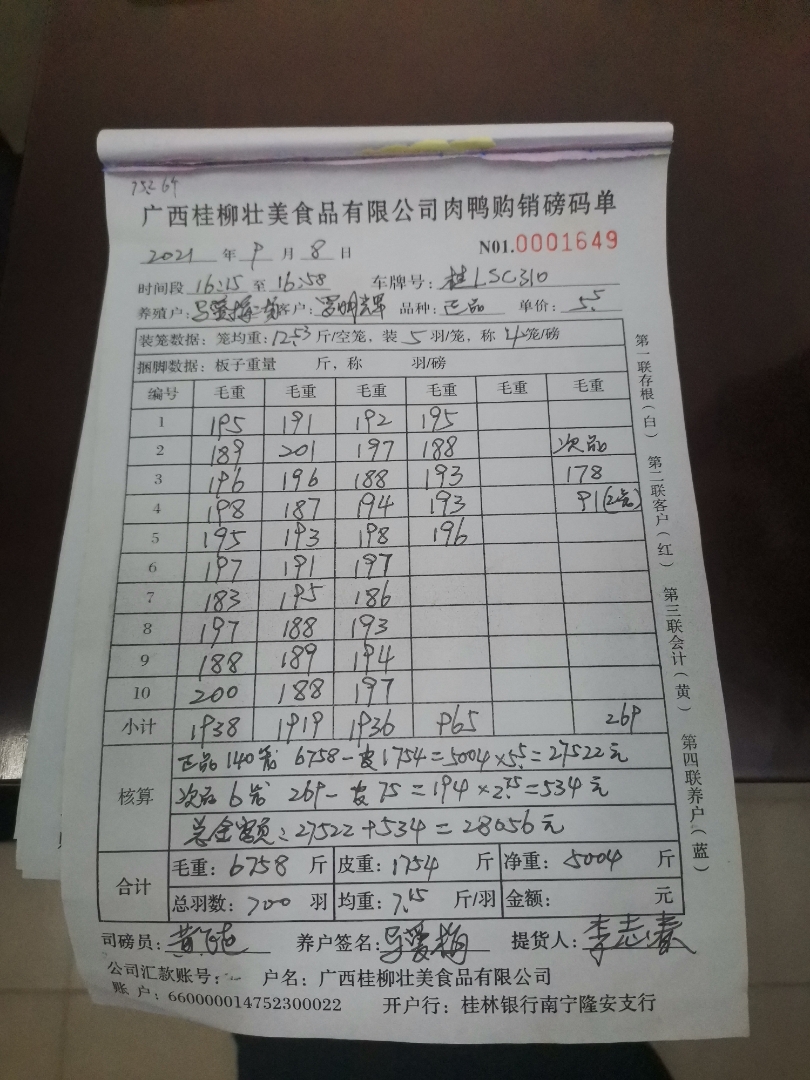 广西桂柳壮美食品有限公司肉鸭购销磅码单
2021 年 9 月 8 日 N01.0001649
时间段 16:15 至 16:58 车牌号: 桂LSC310
养殖户: 客户: 品种: 正品 单价: 5.5
装笼数据: 笼均重: 12.53 斤/空笼, 装 5 羽/笼, 称 4 笼/磅
捆脚数据: 板子重量 斤, 称 羽/磅
编号 毛重 毛重 毛重 毛重 毛重 毛重
1 195 191 192 195
2 189 201 197 188 次品
3 196 196 188 193 178
4 198 187 194 193 91(2笼)
5 195 193 198 196
6 197 191 197
7 183 195 186
8 197 188 193
9 188 189 194
10 200 188 197
小计 1938 1919 1936 965 269
核算
正品140笼 6758-皮1754=5004×5.5=27522元
次品6笼 269-皮75=194×2.75=534元
总金额:27522+534=28056元
合计
毛重: 6758 斤 皮重: 1754 斤 净重: 5004 斤
总羽数: 700 羽 均重: 7.15 斤/羽 金额: 元
司磅员: 养户签名: 提货人: 李志春
公司汇款账号: 户名: 广西桂柳壮美食品有限公司
账户: 660000014752300022 开户行: 桂林银行南宁隆安支行
第一联存根(白) 第二联客户(红) 第三联会计(黄) 第四联养户(蓝)